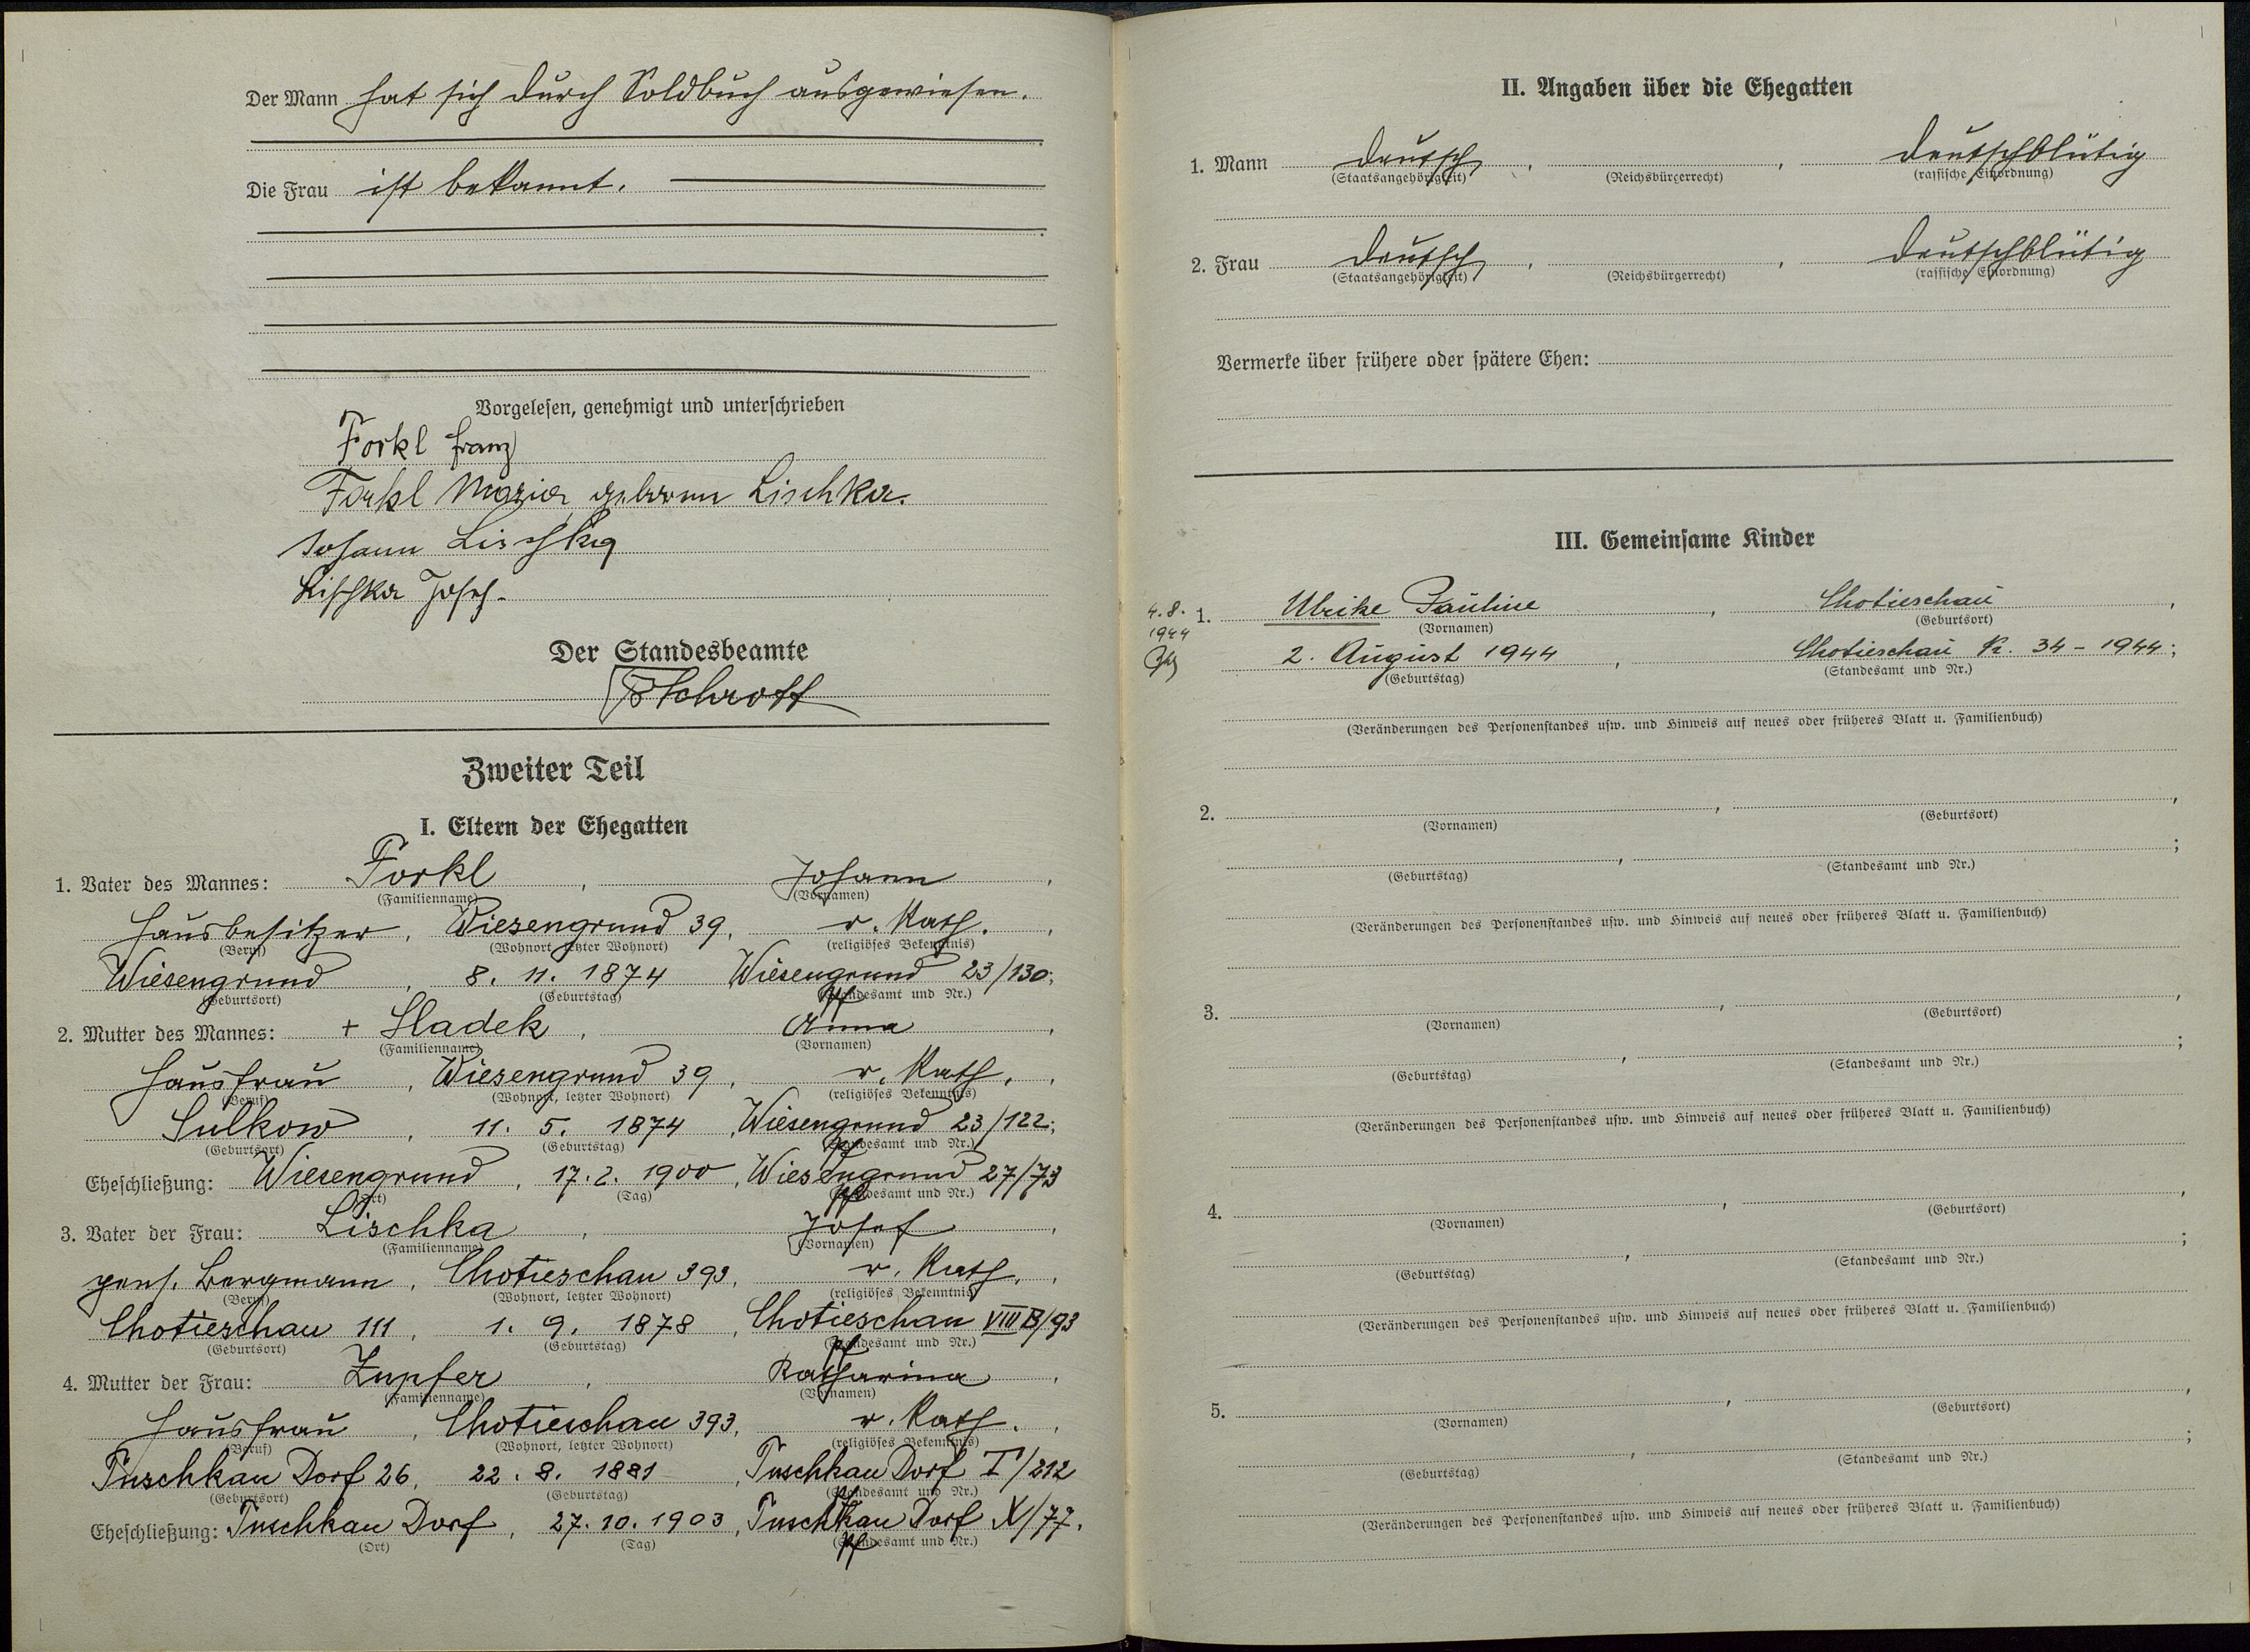 Der Mann hat sich durch Soldbuch ausgewiesen.
Die Frau ist bekannt.
Vorgelesen, genehmigt und unterschrieben
Forkl Franz
Forkl Maria geborene Lischka.
Johann Lischka
Lischka Josef.
Der Standesbeamte
Schrott
Zweiter Teil
I. Eltern der Ehegatten
1. Vater des Mannes: Forkl, Johann,
(Familienname) (Vornamen)
Hausbesitzer, Wiesengrund 39, r. kath.,
(Beruf) (Wohnort, letzter Wohnort) (religiöses Bekenntnis)
Wiesengrund, 8. 11. 1874 Wiesengrund 23/130;
(Geburtsort) (Geburtstag) (Standesamt und Nr.)
2. Mutter des Mannes: + Sladek, Anna,
(Familienname) (Vornamen)
Hausfrau, Wiesengrund 39, r. kath.,
(Beruf) (Wohnort, letzter Wohnort) (religiöses Bekenntnis)
Sulkow, 11. 5. 1874, Wiesengrund 23/122;
(Geburtsort) (Geburtstag) (Standesamt und Nr.)
Eheschließung: Wiesengrund, 17. 2. 1900, Wiesengrund 27/73
(Ort) (Tag) (Standesamt und Nr.)
3. Vater der Frau: Lischka, Josef,
(Familienname) (Vornamen)
pens. Bergmann, Chotieschau 393, r. kath.,
(Beruf) (Wohnort, letzter Wohnort) (religiöses Bekenntnis)
Chotieschau 111, 1. 9. 1878, Chotieschau VIII B/93
(Geburtsort) (Geburtstag) (Standesamt und Nr.)
4. Mutter der Frau: Zupfer, Katharina,
(Familienname) (Vornamen)
Hausfrau, Chotieschau 393, r. kath.,
(Beruf) (Wohnort, letzter Wohnort) (religiöses Bekenntnis)
Tuschkau Dorf 26, 22. 8. 1881, Tuschkau Dorf I/212
(Geburtsort) (Geburtstag) (Standesamt und Nr.)
Eheschließung: Tuschkau Dorf, 27. 10. 1903, Tuschkau Dorf X/77.
(Ort) (Tag) (Standesamt und Nr.)
II. Angaben über die Ehegatten
1. Mann deutsch, , deutschblütig
(Staatsangehörigkeit) (Reichsbürgerrecht) (rassische Einordnung)
2. Frau deutsch, , deutschblütig
(Staatsangehörigkeit) (Reichsbürgerrecht) (rassische Einordnung)
Vermerke über frühere oder spätere Ehen:
III. Gemeinsame Kinder
4. 8. 1944
1. Ulrike Pauline, Chotieschau,
(Vornamen) (Geburtsort)
2. August 1944, Chotieschau K. 34 - 1944;
(Geburtstag) (Standesamt und Nr.)
(Veränderungen des Personenstandes usw. und Hinweis auf neues oder früheres Blatt u. Familienbuch)
2. , ,
(Vornamen) (Geburtsort)
, ;
(Geburtstag) (Standesamt und Nr.)
(Veränderungen des Personenstandes usw. und Hinweis auf neues oder früheres Blatt u. Familienbuch)
3. , ,
(Vornamen) (Geburtsort)
, ;
(Geburtstag) (Standesamt und Nr.)
(Veränderungen des Personenstandes usw. und Hinweis auf neues oder früheres Blatt u. Familienbuch)
4. , ,
(Vornamen) (Geburtsort)
, ;
(Geburtstag) (Standesamt und Nr.)
(Veränderungen des Personenstandes usw. und Hinweis auf neues oder früheres Blatt u. Familienbuch)
5. , ,
(Vornamen) (Geburtsort)
, ;
(Geburtstag) (Standesamt und Nr.)
(Veränderungen des Personenstandes usw. und Hinweis auf neues oder früheres Blatt u. Familienbuch)